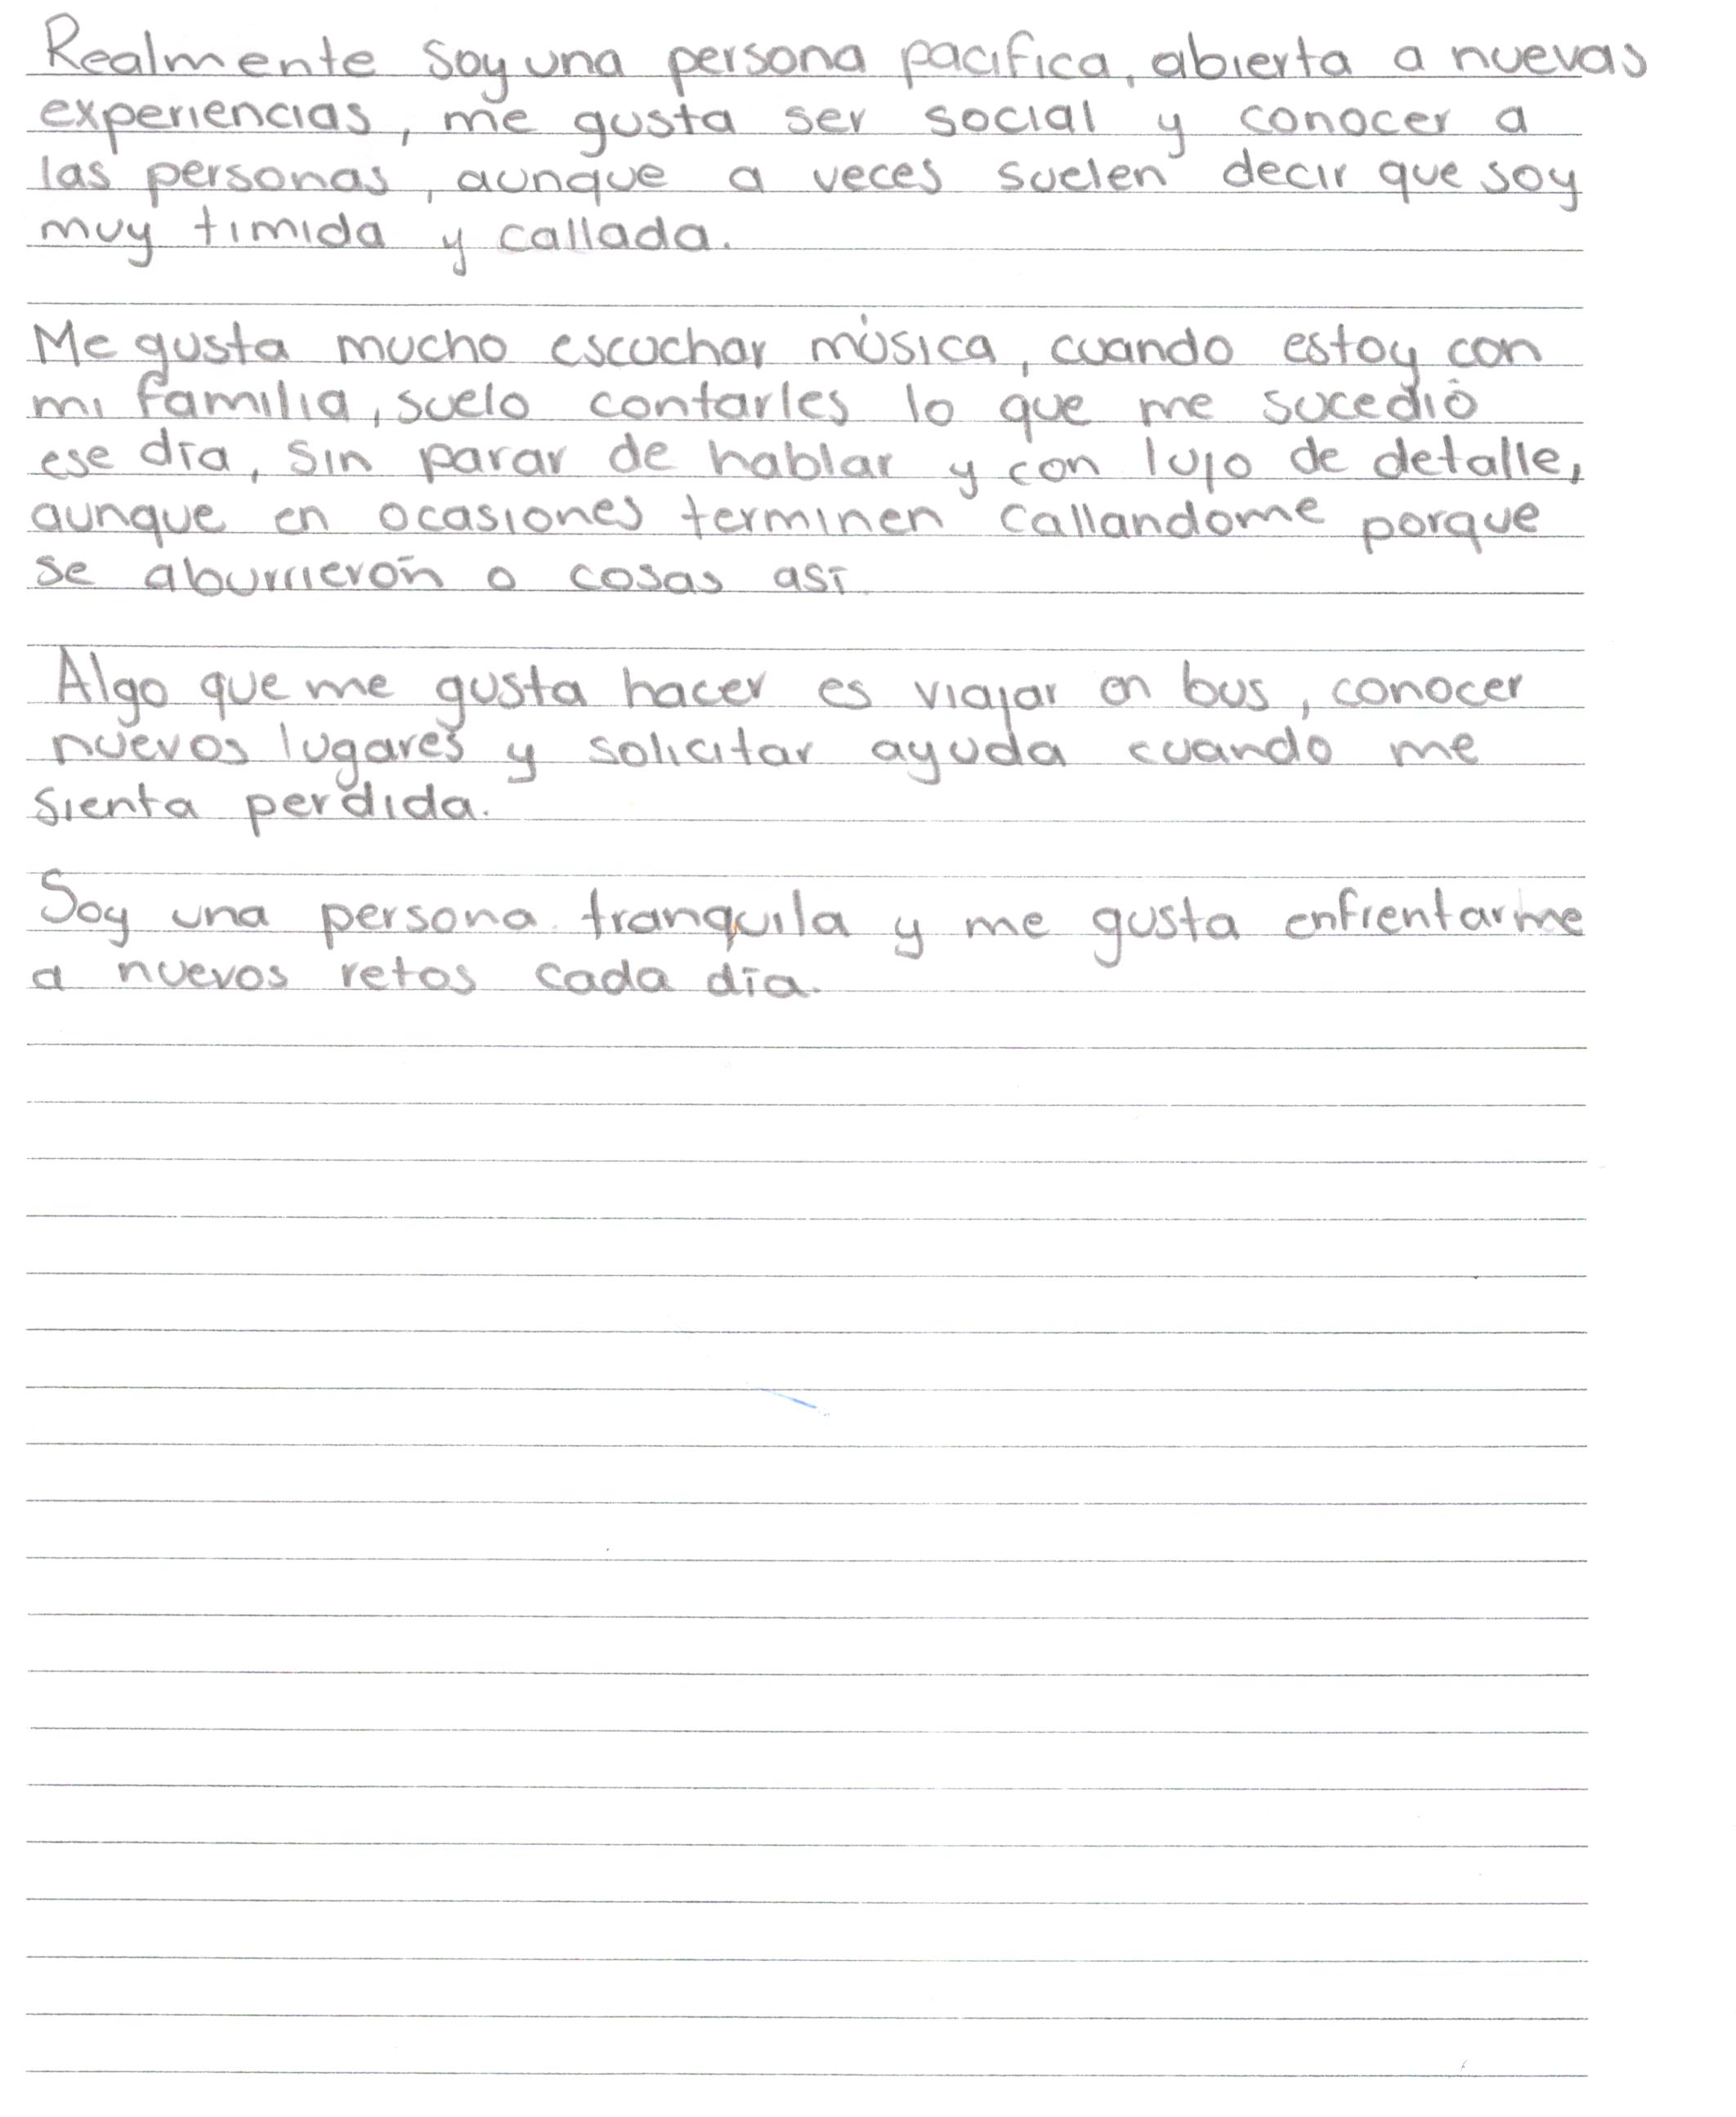 Realmente soy una persona pacifica, abierta a nuevas
experiencias, me gusta ser social y conocer a
las personas, aunque a veces suelen decir que soy
muy timida y callada.
Me gusta mucho escuchar música, cuando estoy con
mi familia, suelo contarles lo que me sucedió
ese día, sin parar de hablar y con lujo de detalle,
aunque en ocasiones terminen callandome porque
se aburrierón o cosas así.
Algo que me gusta hacer es viajar en bus, conocer
nuevos lugares y solicitar ayuda cuando me
sienta perdida.
Soy una persona tranquila y me gusta enfrentarme
a nuevos retos cada día.